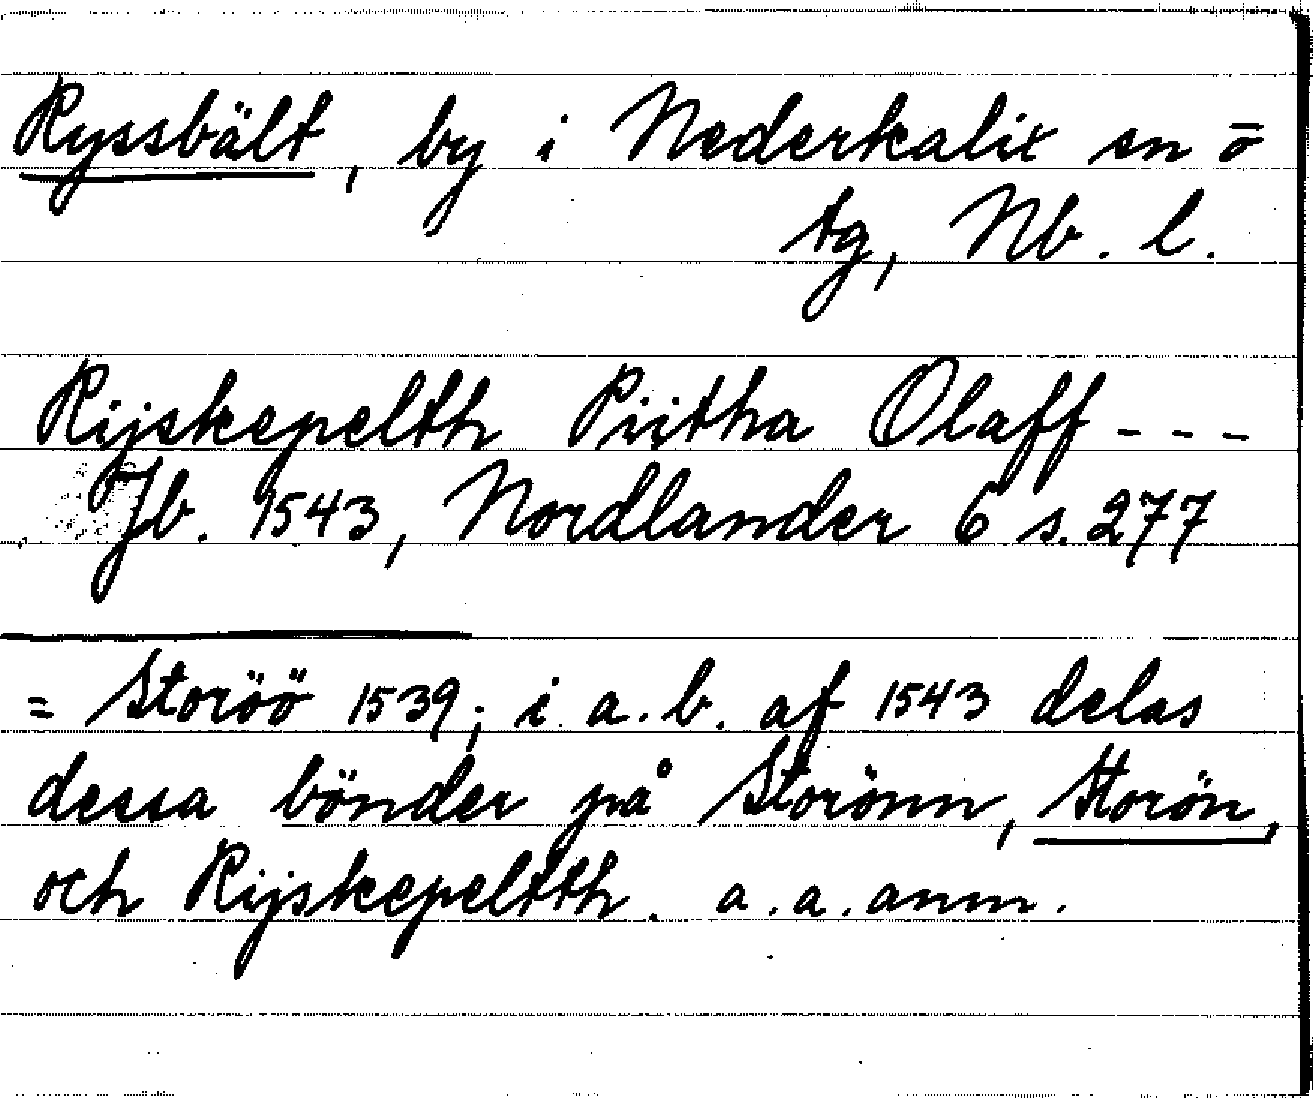 Ryssbält, by i Nederkalix sn ō
tg, Nb. l.
Rijskepelth Piitha Olaff - - -
Jb. 1543, Nordlander 6 s. 277
= Storöö 1539; i a. b. af 1543 delas
dessa bönder på Storönn, Storön,
och Rijskepeltth. a. a. anm.